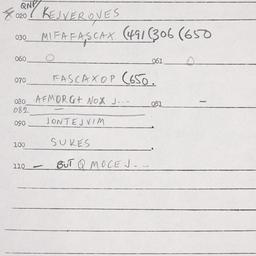 QNP/
020 KEJVERQVES
030 MIFAFASCAX (491(306(650
060 O 061 O
070 FASCAXOP (650.
080 AFMDRGT NOX J--- 081 -
082 -
090 JONTEJVIM .
100 SUKES .
110 - BUT Q MOCE J---